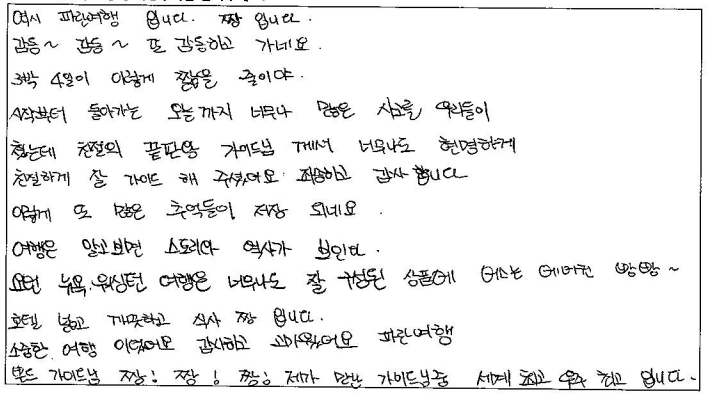 역시 파란여행 입니다. 짱 입니다.
감동~ 감동~ 또 감동하고 가네요.
3박 4일이 이렇게 짧을 줄이야.
시작부터 돌아가는 오늘까지 너무나 많은 사고를 우리들이
쳤는데 친절의 끝판왕 가이드님 께서 너무나도 현명하게
친절하게 잘 가이드 해 주셨어요 죄송하고 감사 합니다
이렇게 또 많은 추억들이 저장 되네요.
여행은 알고보면 스토리와 역사가 보인다.
요번 뉴욕.워싱턴 여행은 너무나도 잘 구성된 상품에 버스는 에어컨 빵빵~
호텔 넓고 깨끗하고 식사 짱 입니다.
소중한 여행 이었어요 감사하고 고마웠어요 파란여행
가이드님 짱! 짱! 짱! 제가 만난 가이드님중 세계 최고 우주 최고 입니다.